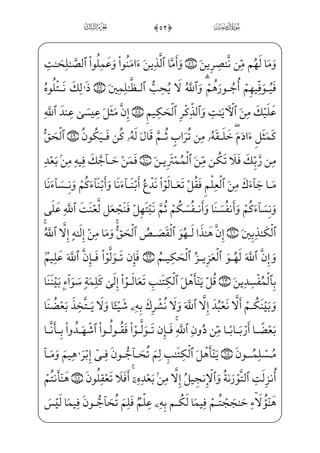 سُورَةُ آلِ عِمْرَانَ ﴿٥٢﴾ الجُزْءُ الثَّالِثُ
وَمَا لَهُم مِّن نَّٰصِرِينَ ۝٥٦ وَأَمَّا ٱلَّذِينَ ءَامَنُوا۟ وَعَمِلُوا۟ ٱلصَّٰلِحَٰتِ
فَيُوَفِّيهِمْ أُجُورَهُمْ ۗ وَٱللَّهُ لَا يُحِبُّ ٱلظَّٰلِمِينَ ۝٥٧ ذَٰلِكَ نَتْلُوهُ
عَلَيْكَ مِنَ ٱلْـَٔايَٰتِ وَٱلذِّكْرِ ٱلْحَكِيمِ ۝٥٨ إِنَّ مَثَلَ عِيسَىٰ عِندَ ٱللَّهِ
كَمَثَلِ ءَادَمَ ۖ خَلَقَهُۥ مِن تُرَابٍ ثُمَّ قَالَ لَهُۥ كُن فَيَكُونُ ۝٥٩ ٱلْحَقُّ
مِن رَّبِّكَ فَلَا تَكُن مِّنَ ٱلْمُمْتَرِينَ ۝٦٠ فَمَنْ حَآجَّكَ فِيهِ مِنۢ بَعْدِ
مَا جَآءَكَ مِنَ ٱلْعِلْمِ فَقُلْ تَعَالَوْا۟ نَدْعُ أَبْنَآءَنَا وَأَبْنَآءَكُمْ وَنِسَآءَنَا
وَنِسَآءَكُمْ وَأَنفُسَنَا وَأَنفُسَكُمْ ثُمَّ نَبْتَهِلْ فَنَجْعَل لَّعْنَتَ ٱللَّهِ عَلَى
ٱلْكَٰذِبِينَ ۝٦١ إِنَّ هَٰذَا لَهُوَ ٱلْقَصَصُ ٱلْحَقُّ ۚ وَمَا مِنْ إِلَٰهٍ إِلَّا ٱللَّهُ ۚ
وَإِنَّ ٱللَّهَ لَهُوَ ٱلْعَزِيزُ ٱلْحَكِيمُ ۝٦٢ فَإِن تَوَلَّوْا۟ فَإِنَّ ٱللَّهَ عَلِيمٌۢ
بِٱلْمُفْسِدِينَ ۝٦٣ قُلْ يَٰٓأَهْلَ ٱلْكِتَٰبِ تَعَالَوْا۟ إِلَىٰ كَلِمَةٍ سَوَآءٍۭ بَيْنَنَا
وَبَيْنَكُمْ أَلَّا نَعْبُدَ إِلَّا ٱللَّهَ وَلَا نُشْرِكَ بِهِۦ شَيْـًٔا وَلَا يَتَّخِذَ بَعْضُنَا
بَعْضًا أَرْبَابًا مِّن دُونِ ٱللَّهِ ۚ فَإِن تَوَلَّوْا۟ فَقُولُوا۟ ٱشْهَدُوا۟ بِأَنَّا
مُسْلِمُونَ ۝٦٤ يَٰٓأَهْلَ ٱلْكِتَٰبِ لِمَ تُحَآجُّونَ فِىٓ إِبْرَٰهِيمَ وَمَآ
أُنزِلَتِ ٱلتَّوْرَىٰةُ وَٱلْإِنجِيلُ إِلَّا مِنۢ بَعْدِهِۦٓ ۚ أَفَلَا تَعْقِلُونَ ۝٦٥ هَٰٓأَنتُمْ
هَٰٓؤُلَآءِ حَٰجَجْتُمْ فِيمَا لَكُم بِهِۦ عِلْمٌ فَلِمَ تُحَآجُّونَ فِيمَا لَيْسَ